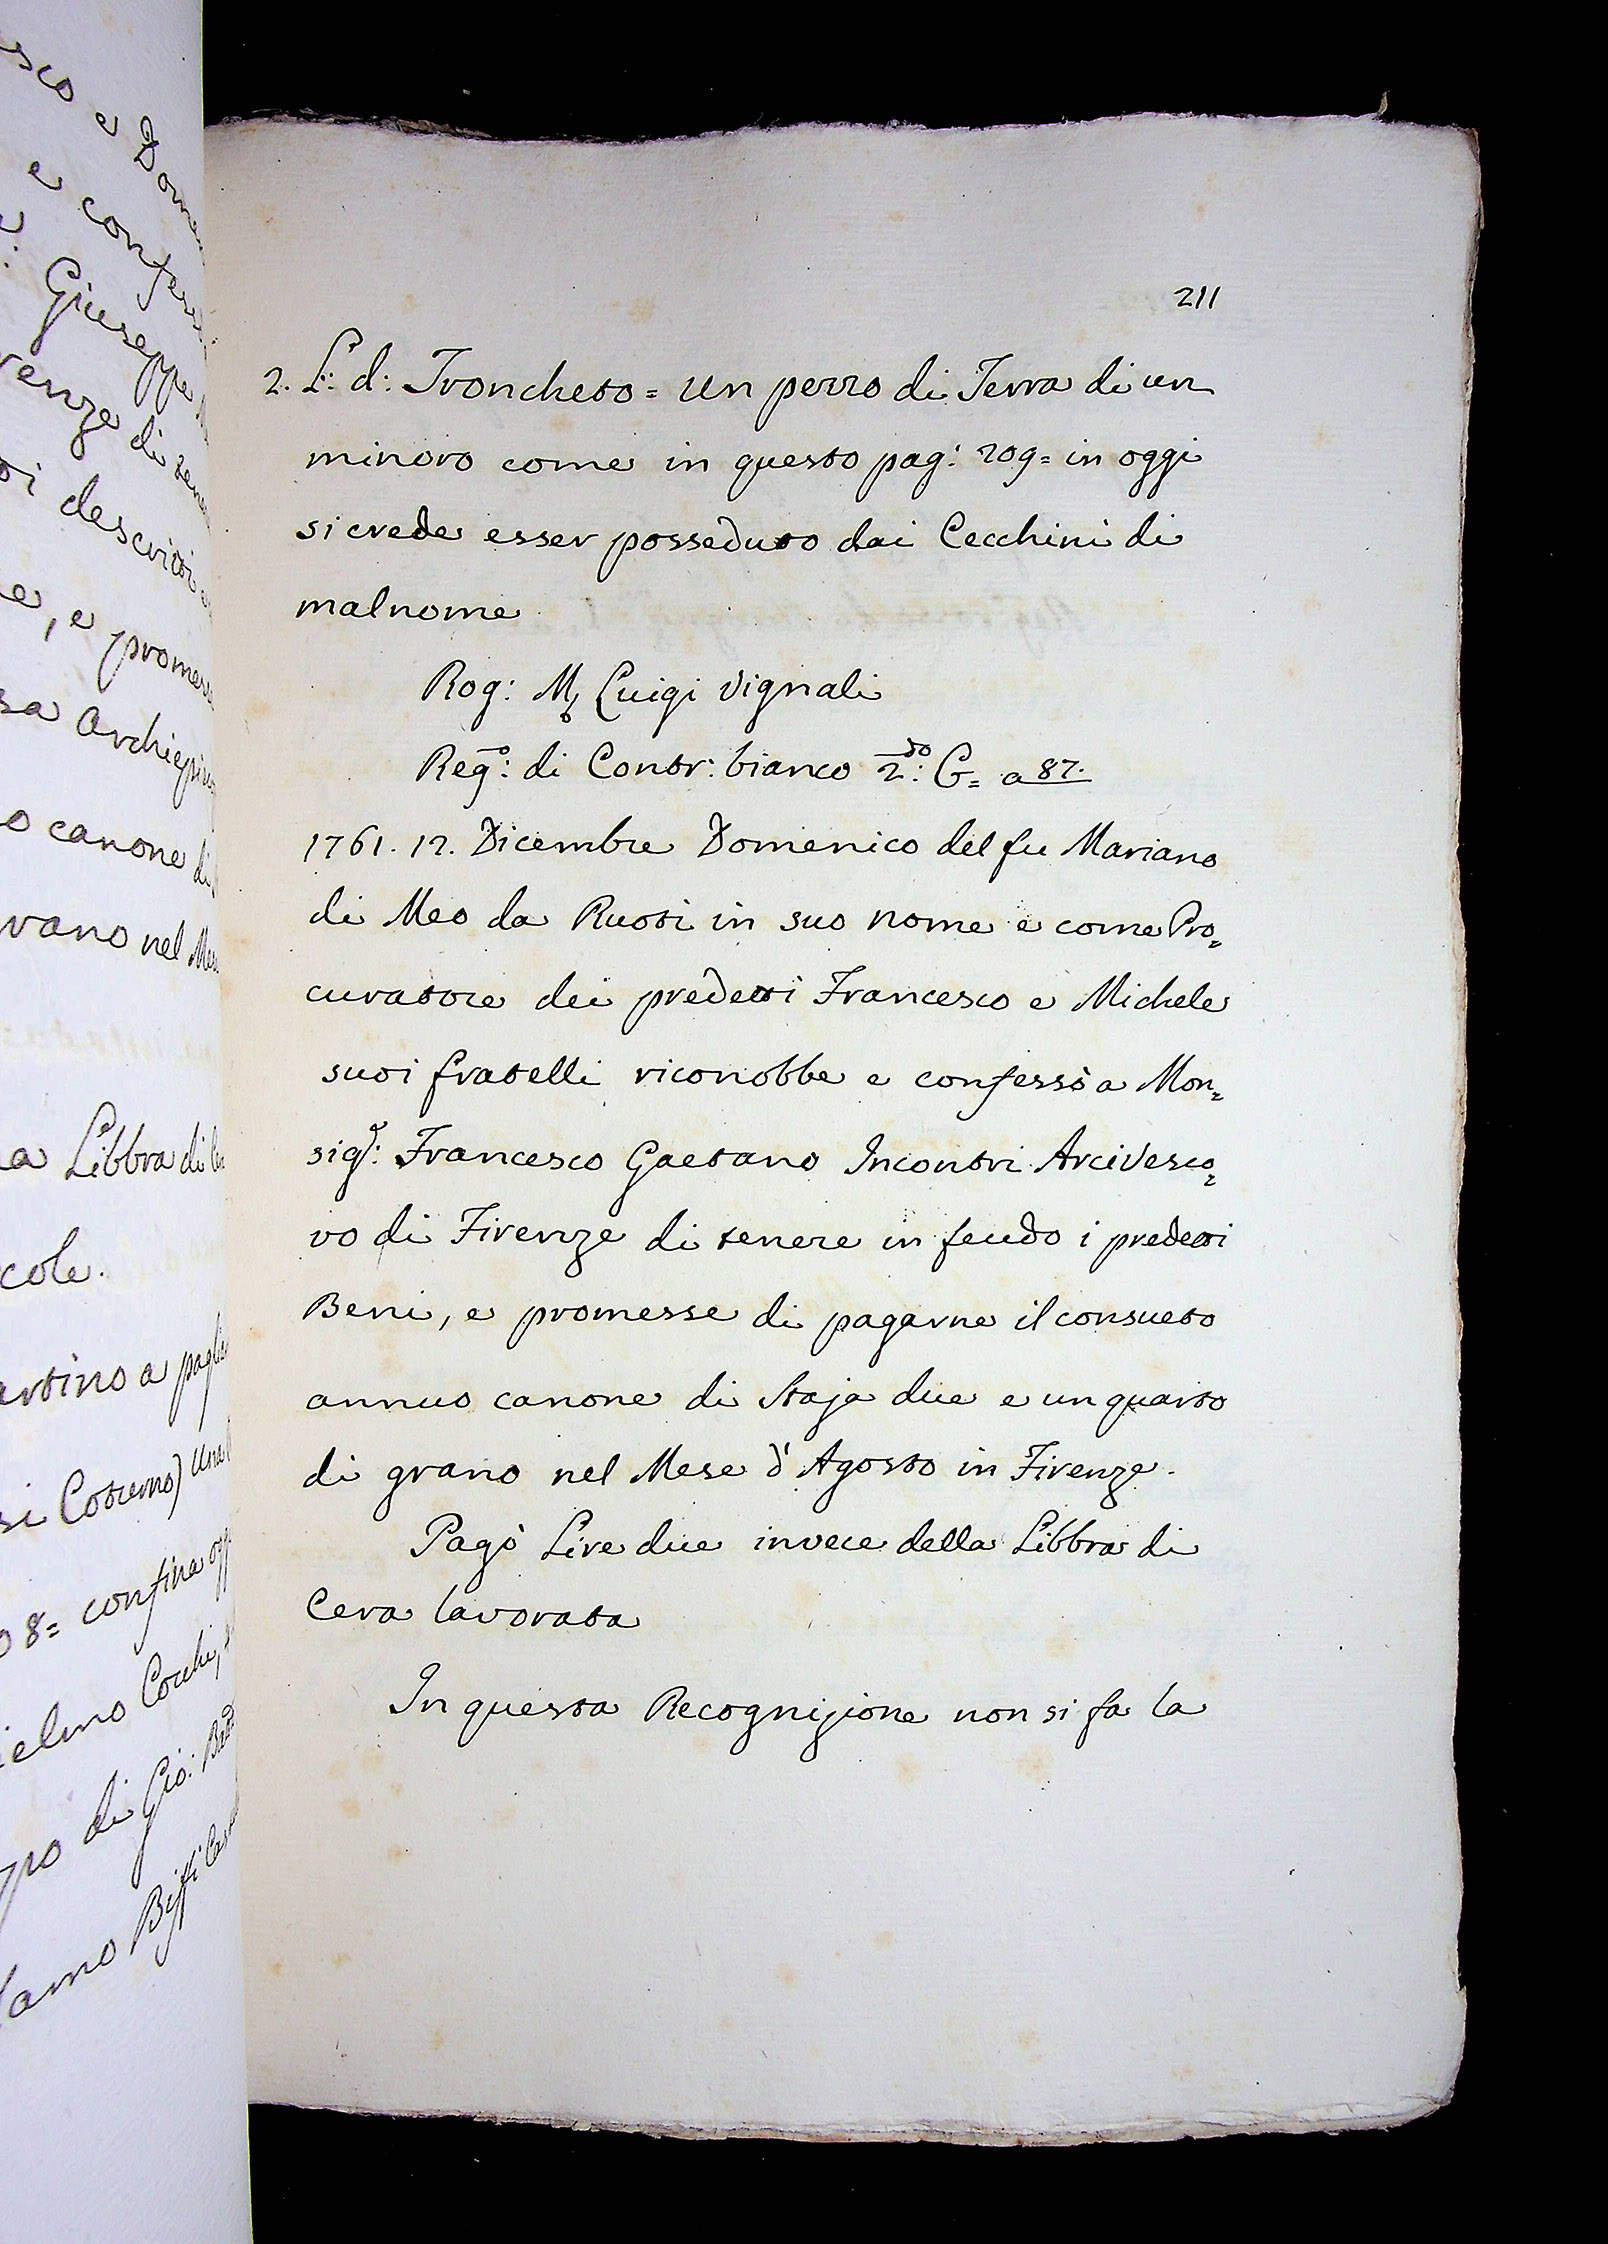 sco e Dome
e confess
Giuseppe
renze di tene
ti descritti
e, e promess
sa Archiepis
o canone di
vano nel Mes
a Libbra di
cole.
artino a pagli
si Coturno) una
08= confina ogg
ielmo Cocchi,
po di Gio: Batt
amo Biffi Cas
211
2. L: d: Troncheto = un pezzo di Terra di un
minoro come in questo pag: 209= in oggi
si crede esser posseduto dai Cecchini di
malnome
Rog: Mr Luigi Vignali
Rego: di Contr: bianco 2do: G= a 87.
1761. 12. Dicembre Domenico del fu Mariano
di Meo da Ruoti in suo nome e come Pro=
curatore dei predetti Francesco e Michele
suoi fratelli riconobbe e confessò a Mon=
sigr: Francesco Gaetano Incontri Arcivesco=
vo di Firenze di tenere in feudo i predetti
Beni, e promesse di pagarne il consueto
annuo canone di Staja due e un quarto
di grano nel Mese d'Agosto in Firenze.
Pagò Lire due invece della Libbra di
Cera lavorata
In questa Recognizione non si fa la